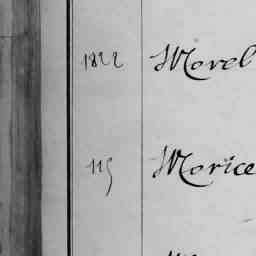 1822 Morel
115 Morice